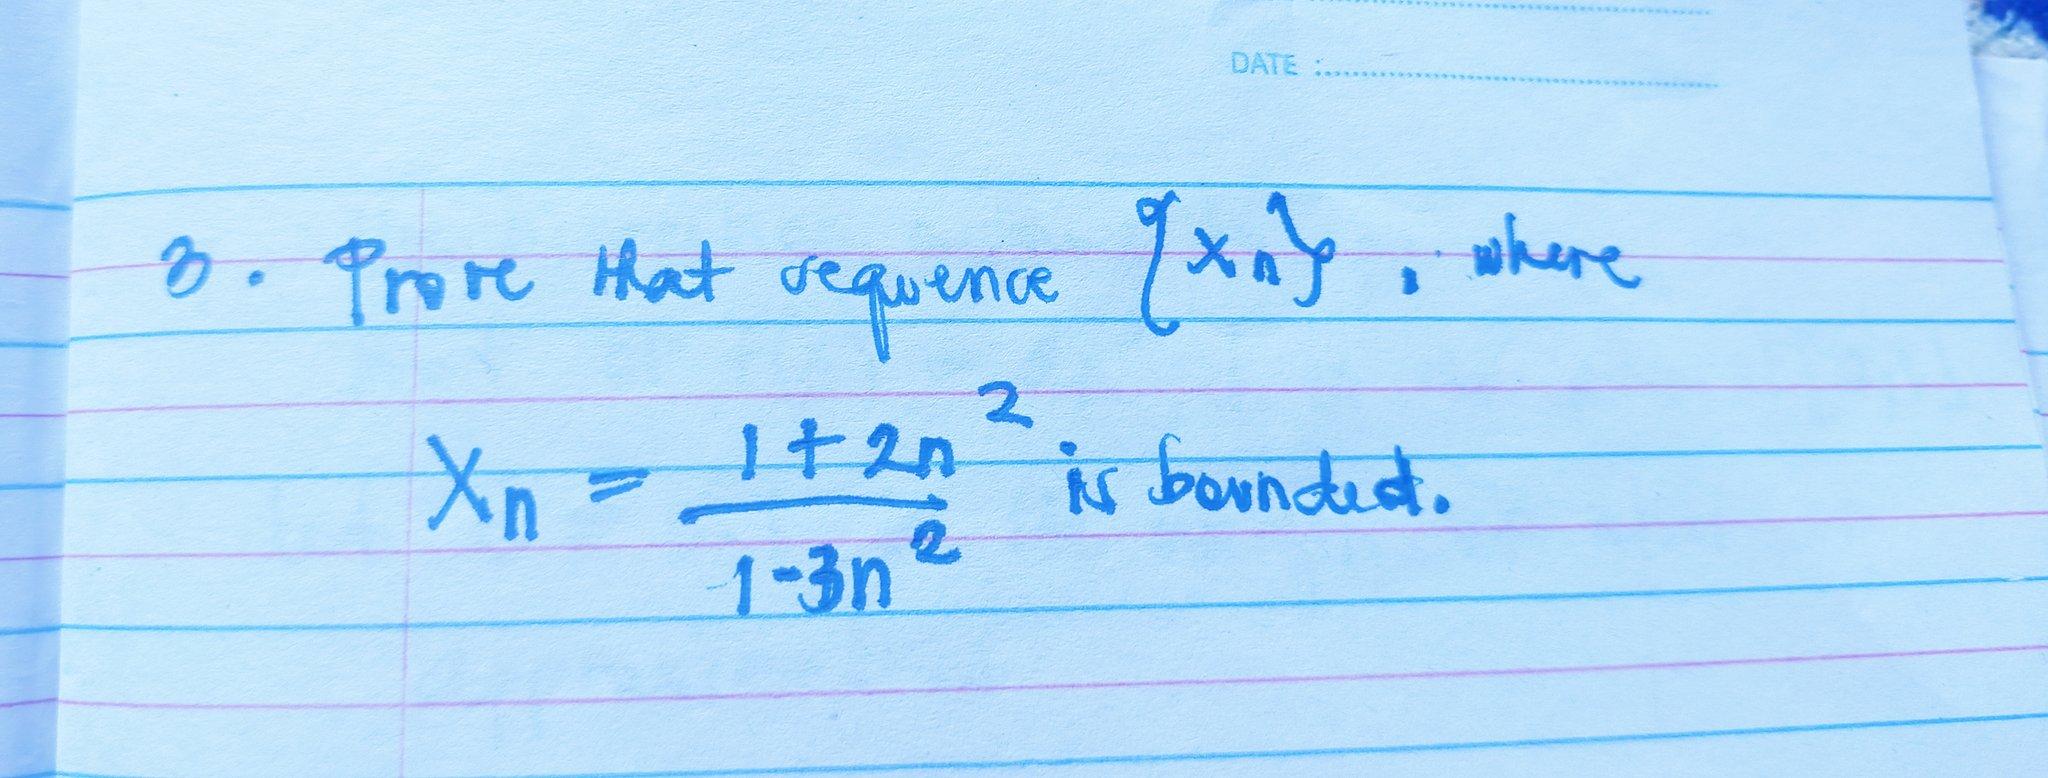 DATE :
3. Prove that sequence {xn}, where
Xn = 1 + 2n² / 1-3n² is bounded.